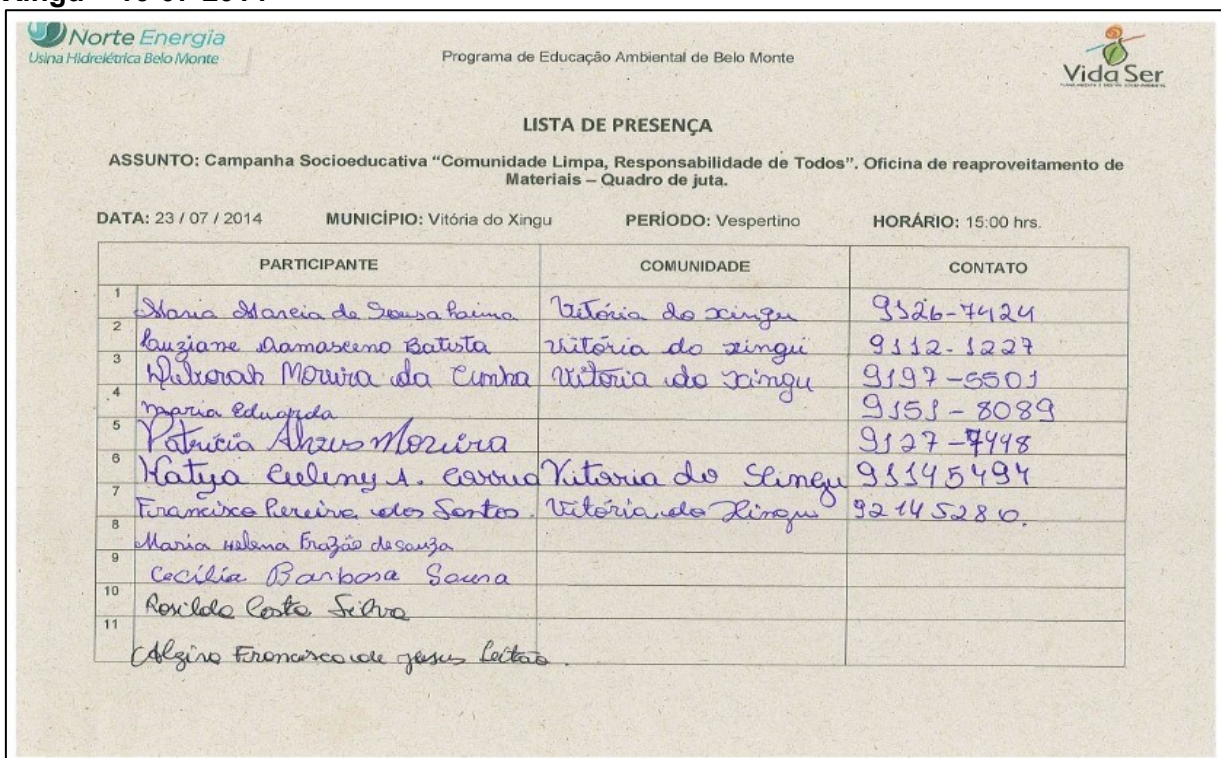 Norte Energia
Usina Hidrelétrica Belo Monte
Programa de Educação Ambiental de Belo Monte
Vida Ser
LISTA DE PRESENÇA
ASSUNTO: Campanha Socioeducativa “Comunidade Limpa, Responsabilidade de Todos”. Oficina de reaproveitamento de
Materiais – Quadro de juta.
DATA: 23 / 07 / 2014 MUNICÍPIO: Vitória do Xingu PERÍODO: Vespertino HORÁRIO: 15:00 hrs.
PARTICIPANTE COMUNIDADE CONTATO
1 Maria Marcia de Sousa Vitória do xingu 9126-7424
2 Luziane Damasceno Batista vitória do xingu 9112-1227
3 Deborah Moreira da Cunha Vitória do xingu 9197-5501
4 maria Eduarda 9151-8089
5 Patrícia Moreira 9127-7448
6 Katya A. Vitoria do Xingu 91145494
7 Francisca Pereira dos Santos. Vitória do Xingu 92145280.
8 Maria Helena Frazão de souza
9 Cecília Barbosa Sousa
10 Rosilda Costa Silva
11 Francisca de jesus Leitão.